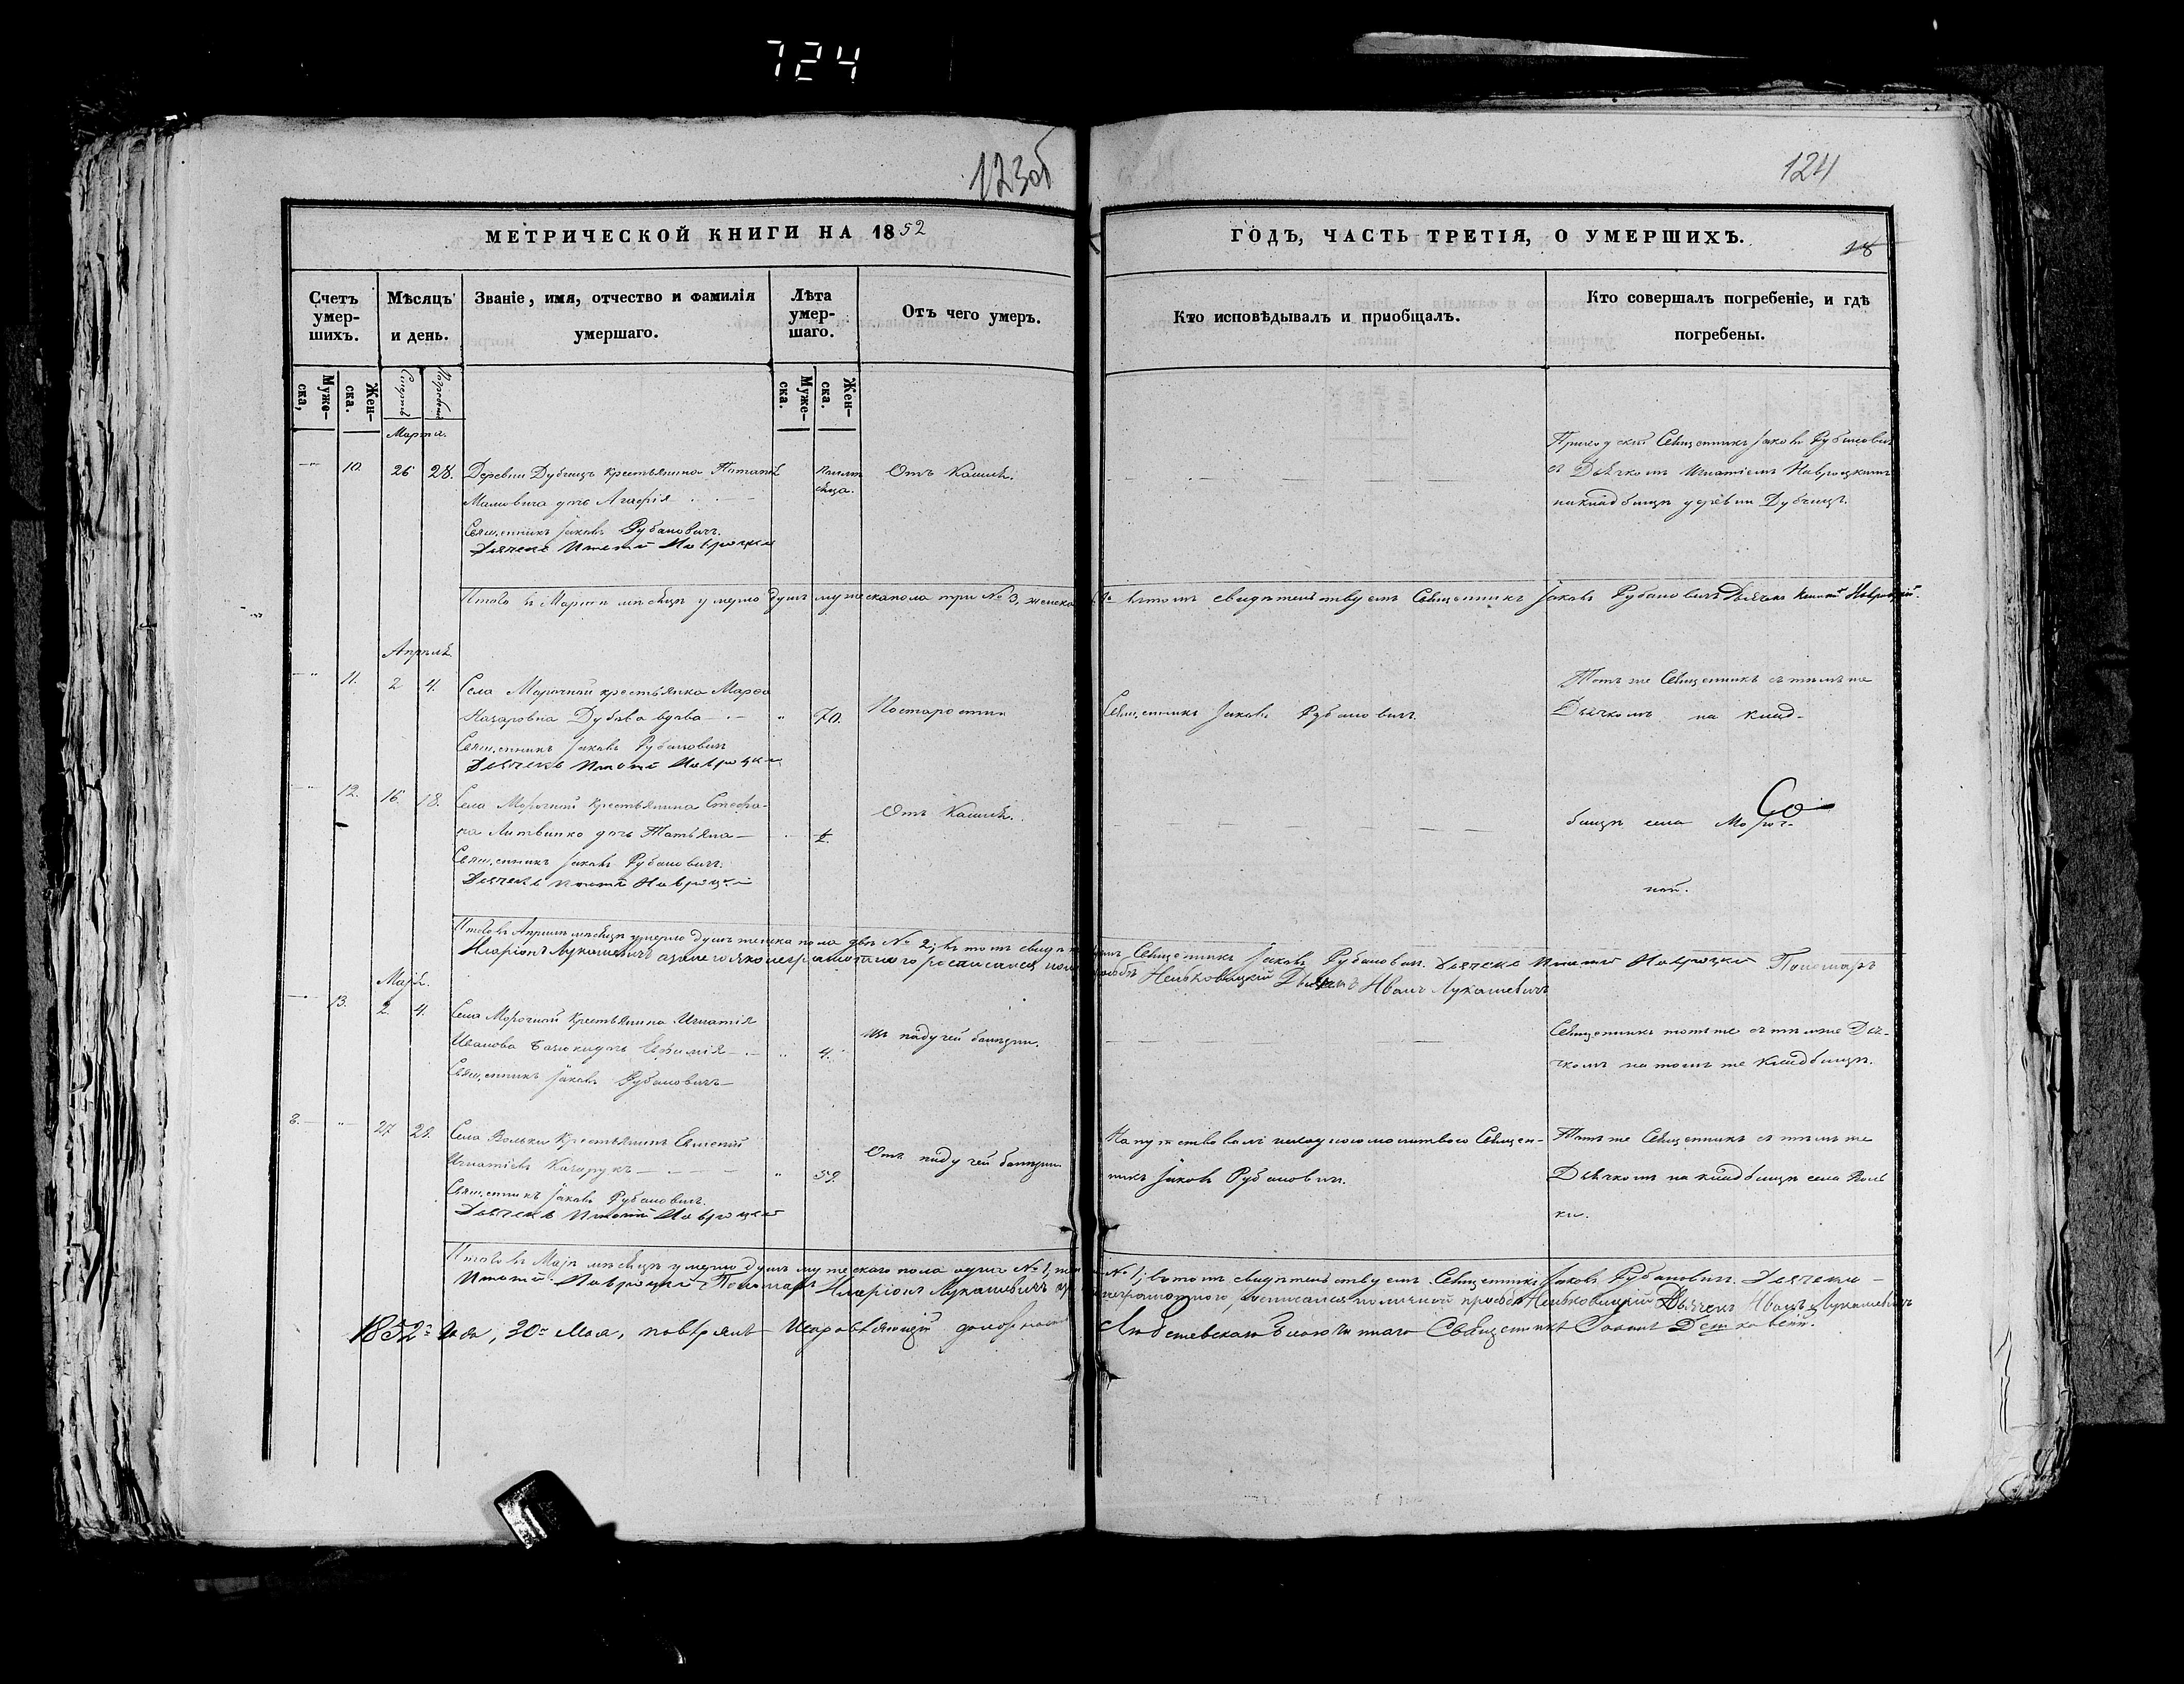 724
123об
124
МЕТРИЧЕСКОЙ КНИГИ НА 1852
ГОДЪ, ЧАСТЬ ТРЕТІЯ, О УМЕРШИХЪ.
18
Счетъ умер-шихъ.
Мѣсяцъ и день.
Званіе, имя, отчество и фамилія умершаго.
Лѣта умер-шаго.
Отъ чего умеръ.
Кто исповѣдывалъ и приобщалъ.
Кто совершалъ погребеніе, и гдѣ погребены.
Муже-ска,
Жен-ска.
Смерть
Муже-ска.
Жен-ска.
Марта.
10. 26 28. Деревни Дубчицъ крестьянина
дчь Агафія
Отъ Кашлѣ.
Священникъ Іаковъ Рубановичъ.
Дьячекъ Игнатій Навроцкій
Приходскій Священникъ Іаковъ Рубановичъ
съ Дьячкомъ Игнатіемъ Навроцкимъ
на кладбищѣ деревни Дубчицъ.
Итого въ Мартѣ мѣсяцѣ умерло душъ мужеска пола три № 3, женска
въ томъ свидѣтельствуемъ Священникъ Іаковъ Рубановичъ Дьячекъ Игнатій Навроцкій.
Апрѣль
11. 2 4. Села Морочной крестьянка Марѳа
Назаровна вдова 70.
Священникъ Іаковъ Рубановичъ
Дьячекъ Игнатій Навроцкій
По старости
Священникъ Іаковъ Рубановичъ.
Тотъ же Священникъ съ тѣмъ же
Дьячкомъ на клад-
12. 16. 18. Села Морочной крестьянина Стефа-
на Литвинко дчь Татьяна
Священникъ Іаковъ Рубановичъ.
Дьячекъ Игнатій Навроцкій
Отъ Кашлѣ.
бищѣ села Мороч-
ной.
Итого въ Апрѣлѣ мѣсяцѣ умерло душъ женска пола двѣ № 2; въ томъ
Священникъ Іаковъ Рубановичъ. Дьячекъ Игнатій Навроцкій Пономарь
Иларіонъ Лукашевичъ а за него яко неграмотнаго росписался
Дьячекъ Иванъ Лукашевичъ
Май.
13. 2. 4. Села Морочной крестьянина Игнатія
Иванова дчь Евфимія 4.
Священникъ Іаковъ Рубановичъ
падучей болѣзни.
Священникъ тотъ же съ тѣмъ же Дья-
чкомъ на томъ же кладбищѣ.
8. 27 28. Села Вольки Крестьянинъ Евгеній
Игнатіевъ 59.
Священникъ Іаковъ Рубановичъ.
Дьячекъ Игнатій Навроцкій
Отъ падучей болѣзни
Напутствовалъ исходною молитвою Священ-
никъ Іаковъ Рубановичъ.
Тотъ же Священникъ съ тѣмъ же
Дьячкомъ на кладбищѣ села Воль
ки.
Итого въ Маѣ мѣсяцѣ умерло душъ мужескаго пола одна № 1,
№ 1; въ томъ свидѣтельствуемъ Священникъ Іаковъ Рубановичъ. Дьячекъ
Игнатій Навроцкій Пономарь Иларіонъ Лукашевичъ
неграмотнаго, росписался по личной просьбѣ Дьячекъ Иванъ Лукашевичъ
1852 года, 30 Мая, повѣрялъ Исправляющій должность
Любешевскаго Благочиннаго Священникъ